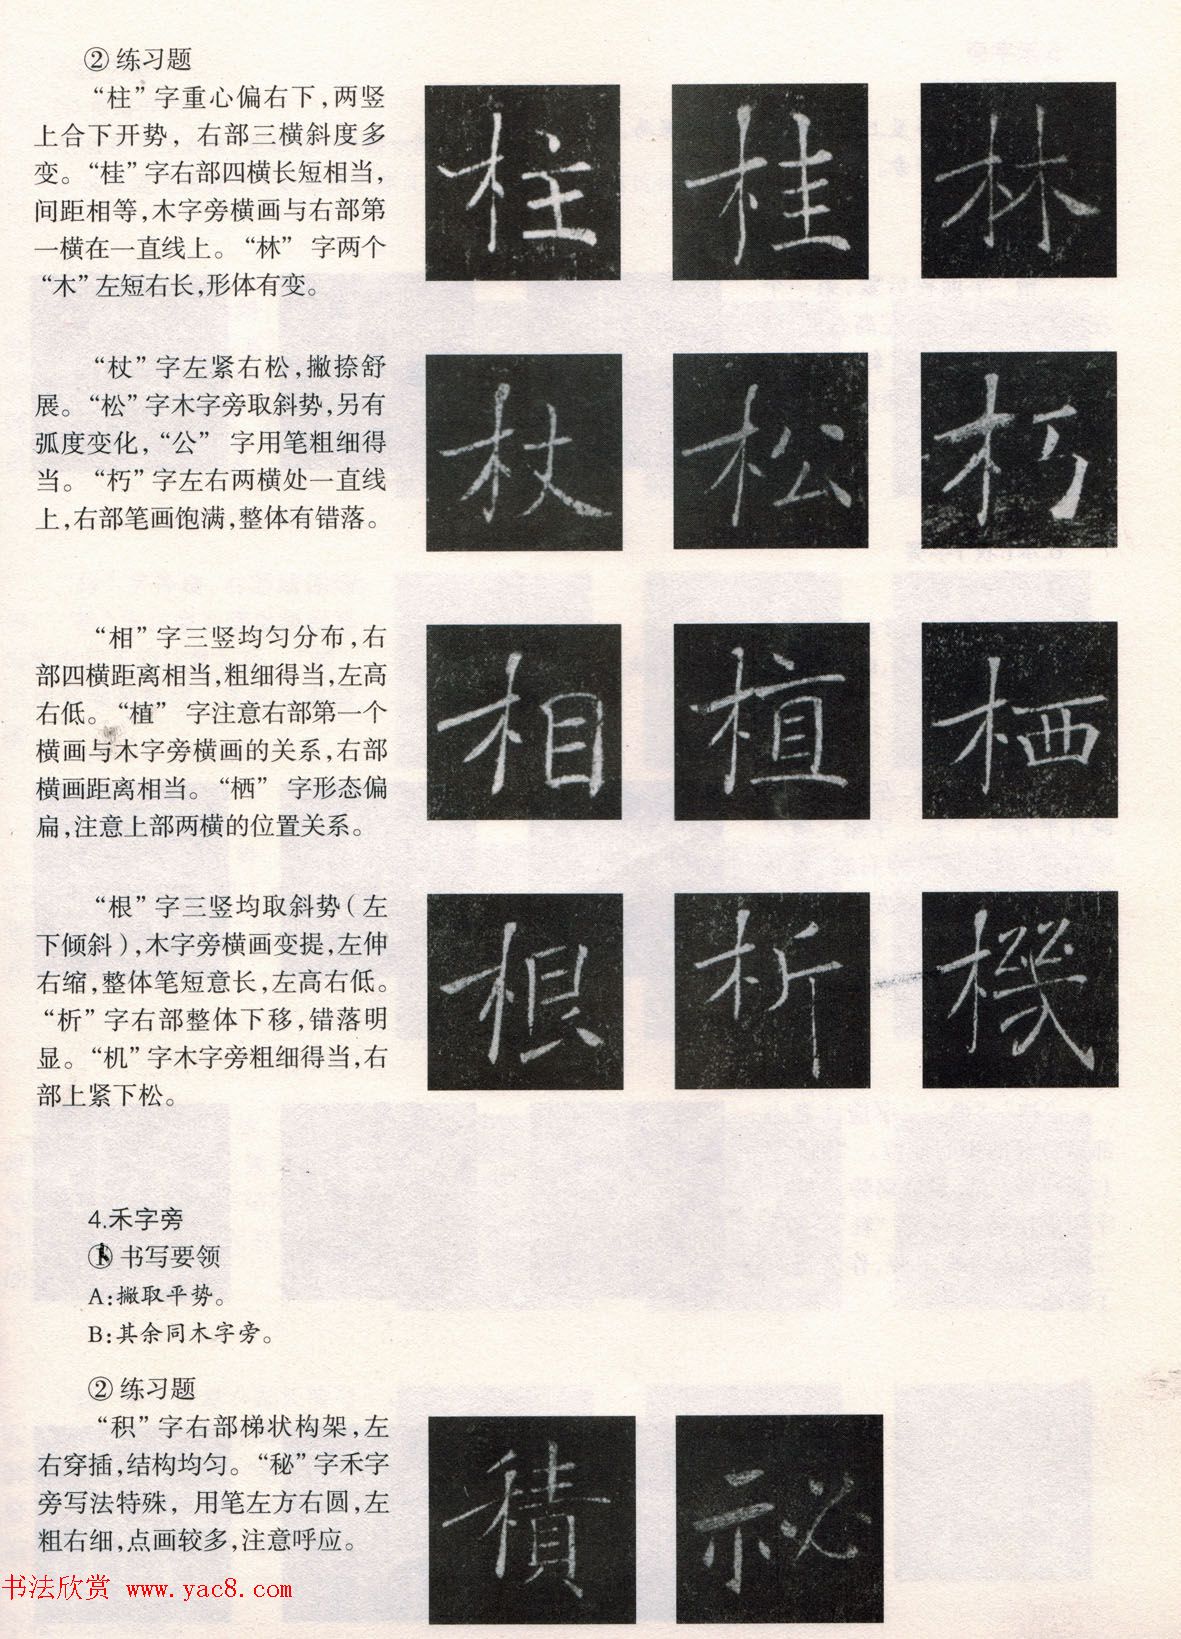 ② 练习题
“柱”字重心偏右下，两竖
上合下开势，右部三横斜度多
变。“桂”字右部四横长短相当，
间距相等，木字旁横画与右部第
一横在一直线上。“林”字两个
“木”左短右长，形体有变。
柱 桂 林
“杖”字左紧右松，撇捺舒
展。“松”字木字旁取斜势，另有
弧度变化，“公”字用笔粗细得
当。“朽”字左右两横处一直线
上，右部笔画饱满，整体有错落。
杖 松 朽
“相”字三竖均匀分布，右
部四横距离相当，粗细得当，左高
右低。“植”字注意右部第一个
横画与木字旁横画的关系，右部
横画距离相当。“栖”字形态偏
扁，注意上部两横的位置关系。
相 植 栖
“根”字三竖均取斜势（左
下倾斜），木字旁横画变提，左伸
右缩，整体笔短意长，左高右低。
“析”字右部整体下移，错落明
显。“机”字木字旁粗细得当，右
部上紧下松。
根 析 機
4.禾字旁
① 书写要领
A：撇取平势。
B：其余同木字旁。
② 练习题
“积”字右部梯状构架，左
右穿插，结构均匀。“秘”字禾字
旁写法特殊，用笔左方右圆，左
粗右细，点画较多，注意呼应。
積 祕
书法欣赏 www.yac8.com